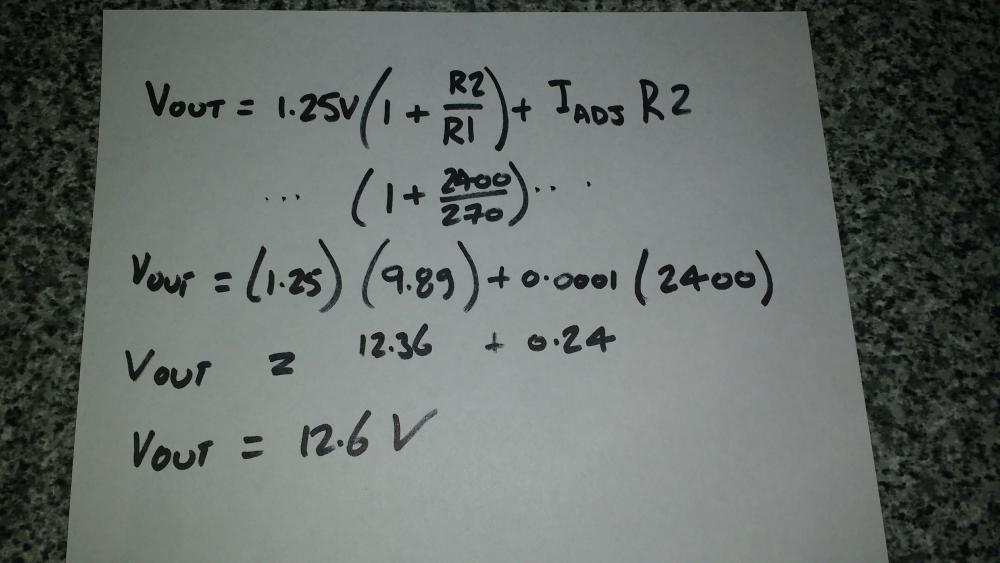 VOUT = 1.25V(1 + R2/R1) + IADJ R2
... (1 + 2400/270) ...
VOUT = (1.25) (9.89) + 0.0001 (2400)
VOUT = 12.36 + 0.24
VOUT = 12.6 V